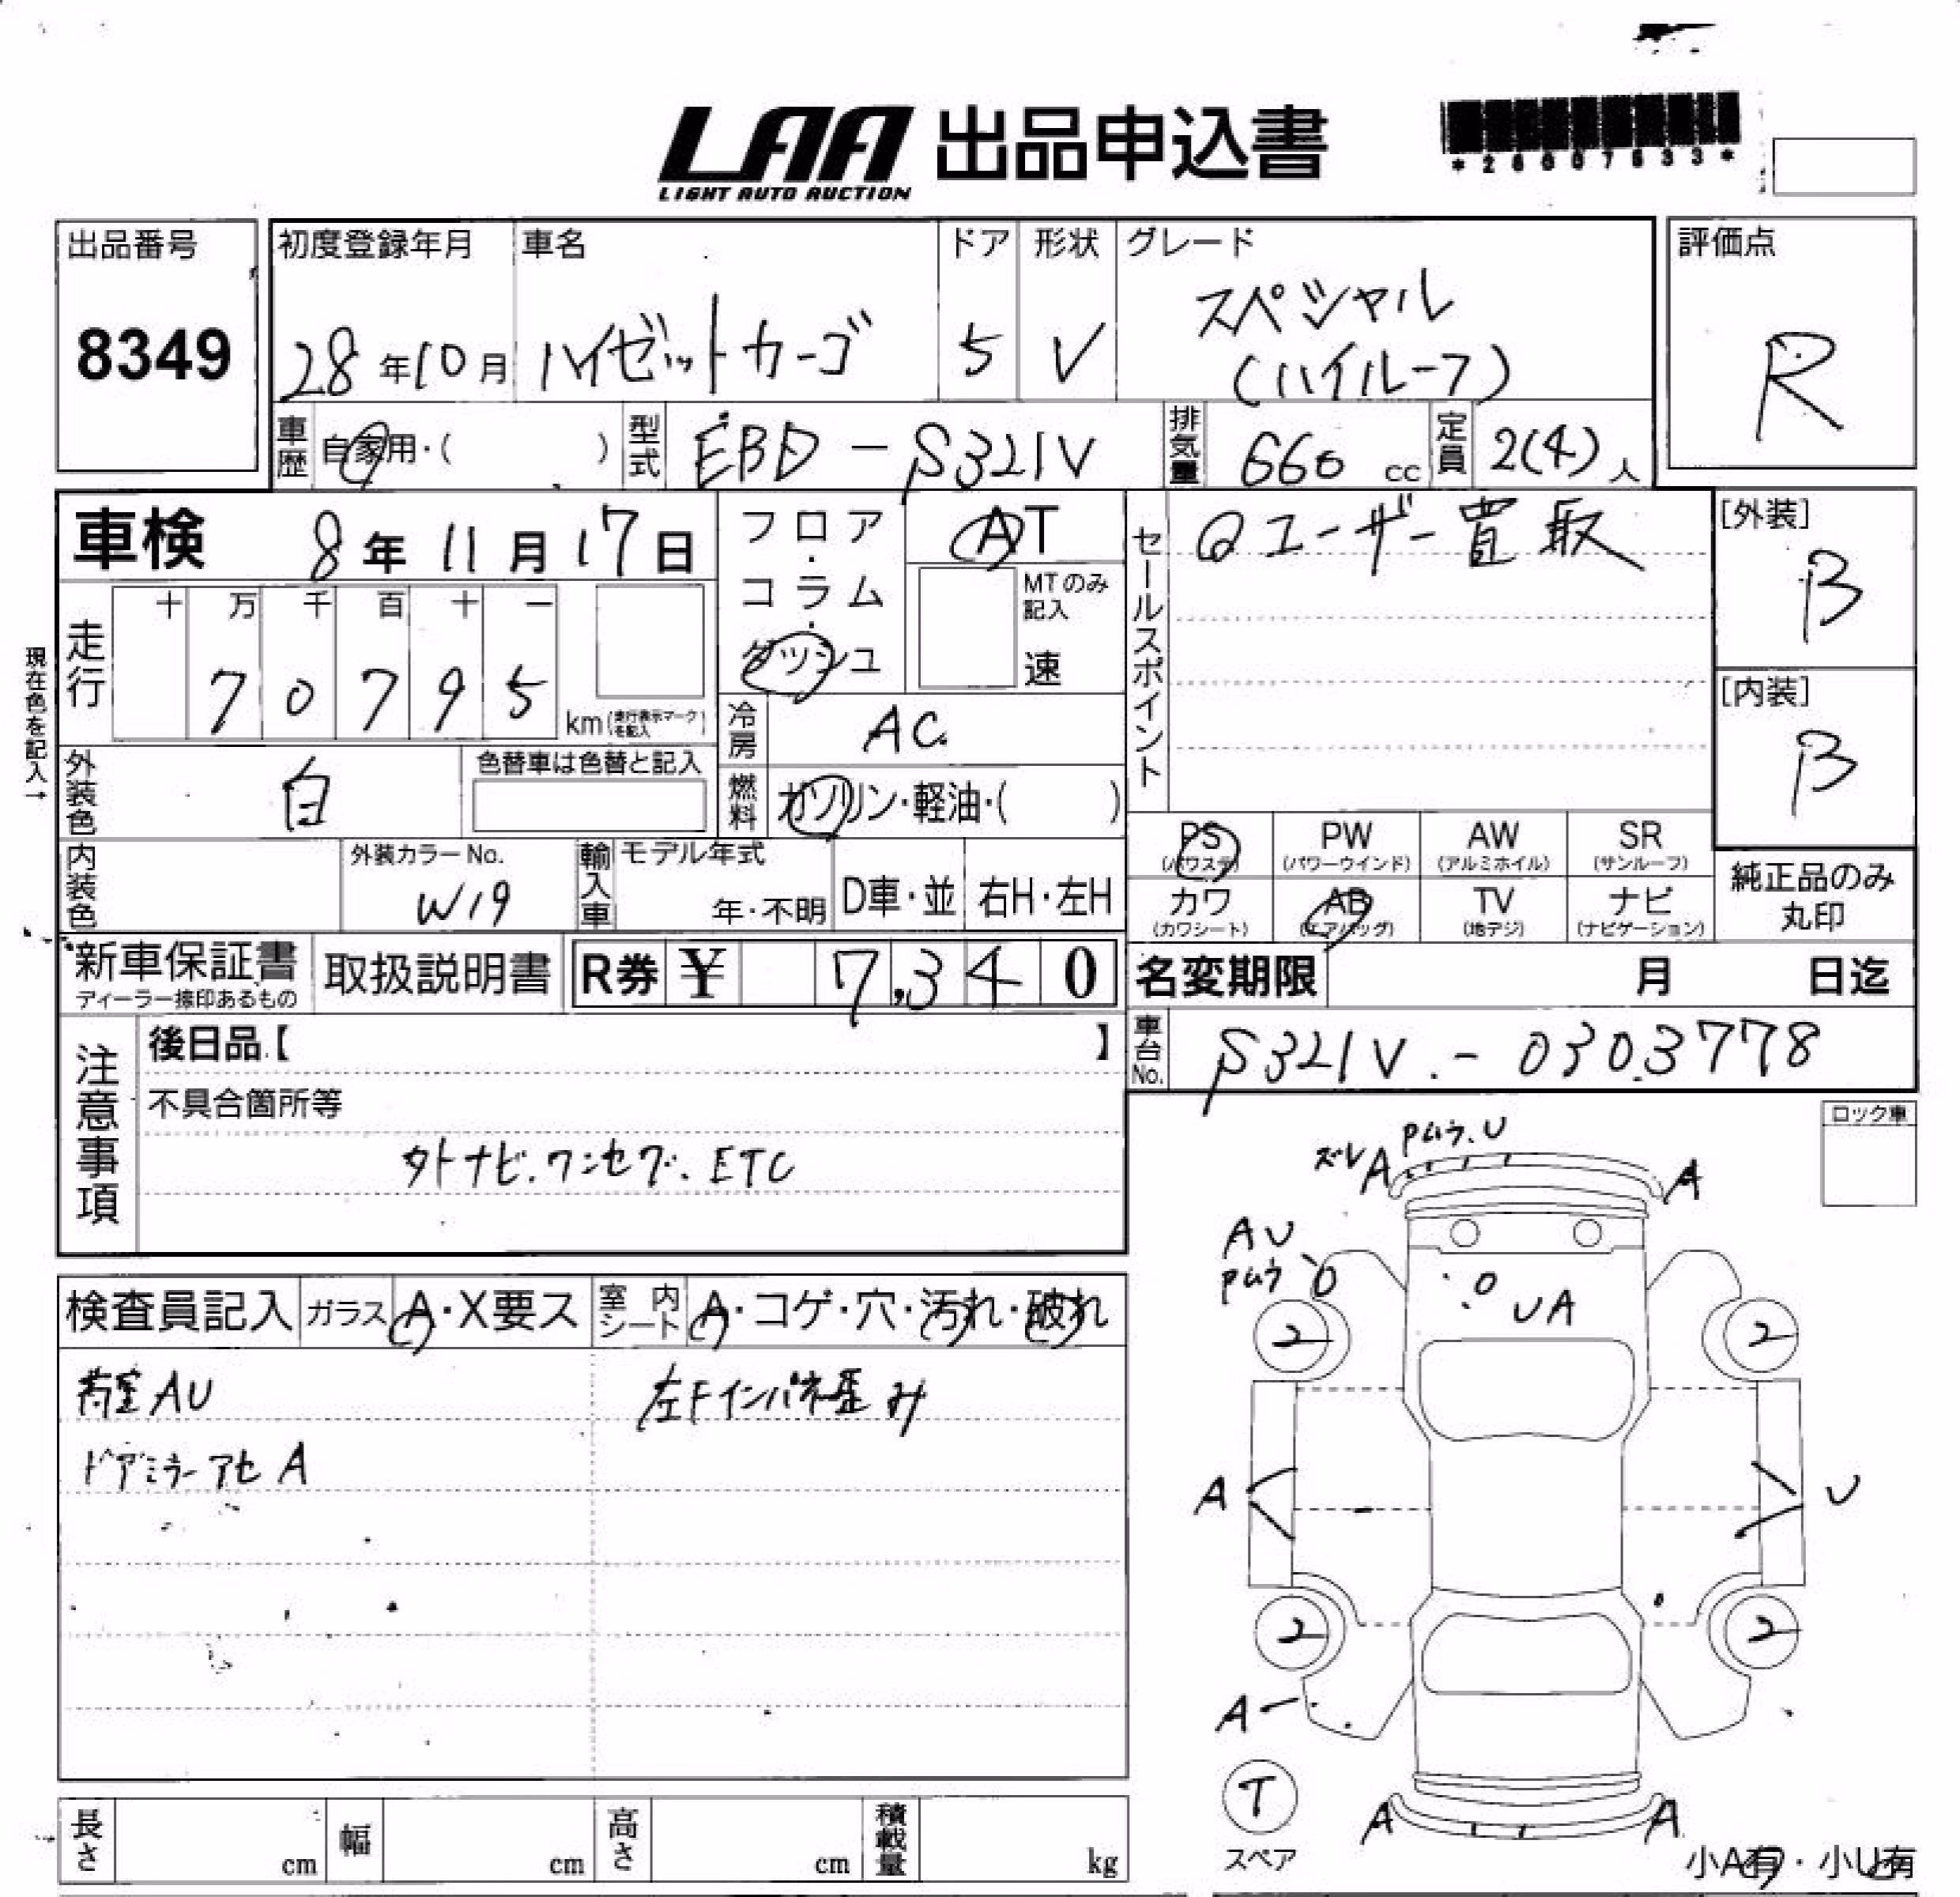 LAA 出品申込書
LIGHT AUTO AUCTION
出品番号
8349
初度登録年月
28年10月
車名
ハイゼットカーゴ
ドア
5
形状
V
グレード
スペシャル
(ハイルーフ)
評価点
R
車歴
自家用・( )
型式
EBD-S321V
排気量
660 cc
定員
2(4)人
車検 8年11月17日
フロア・コラム・ダッシュ
AT
MTのみ記入
速
セールスポイント
Qユーザー買取
[外装]
B
[内装]
B
現在色を記入→
走行
十 万 千 百 十 一
7 0 7 9 5
km(走行表示マークを記入)
冷房
AC
外装色
白
色替車は色替と記入
燃料
ガソリン・軽油・( )
内装色
外装カラーNo.
W19
輸入車
モデル年式
年・不明
D車・並
右H・左H
PS
(パワステ)
PW
(パワーウインド)
AW
(アルミホイル)
SR
(サンルーフ)
カワ
(カワシート)
AB
(エアバッグ)
TV
(地デジ)
ナビ
(ナビゲーション)
純正品のみ
丸印
新車保証書
ディーラー捺印あるもの
取扱説明書
R券 ¥ 7,340
名変期限 月 日迄
車台No.
S321V-0303778
注意事項
後日品【 】
不具合箇所等
外ナビ.ワンセグ.ETC
ロック車
検査員記入
ガラス
A・X要ス
室内シート
A・コゲ・穴・汚れ・破れ
荷室AU
左Fインパネ歪み
ドアミラーアセ A
Pムラ.U
ズレA
A
AU
Pムラ
UA
2
2
A
U
2
2
A
T
スペア
A
A
小A有・小U有
長さ
cm
幅
cm
高さ
cm
積載量
kg